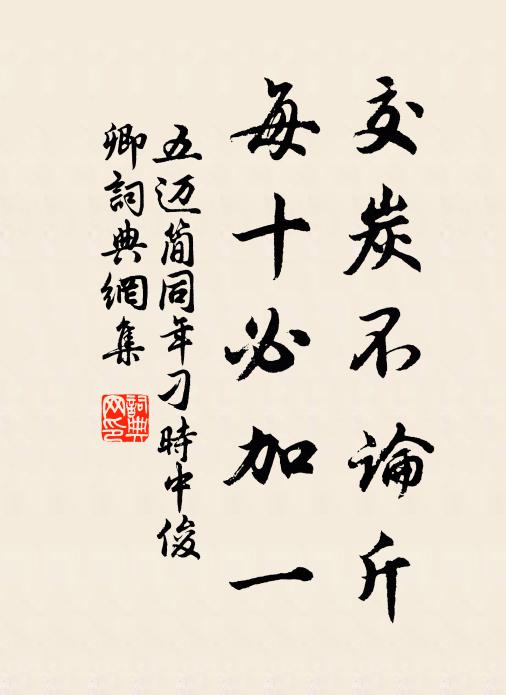 交炭不論斤
每十必加一
五迈简同年刁時中俊
卿詞典網集
詞典
网印